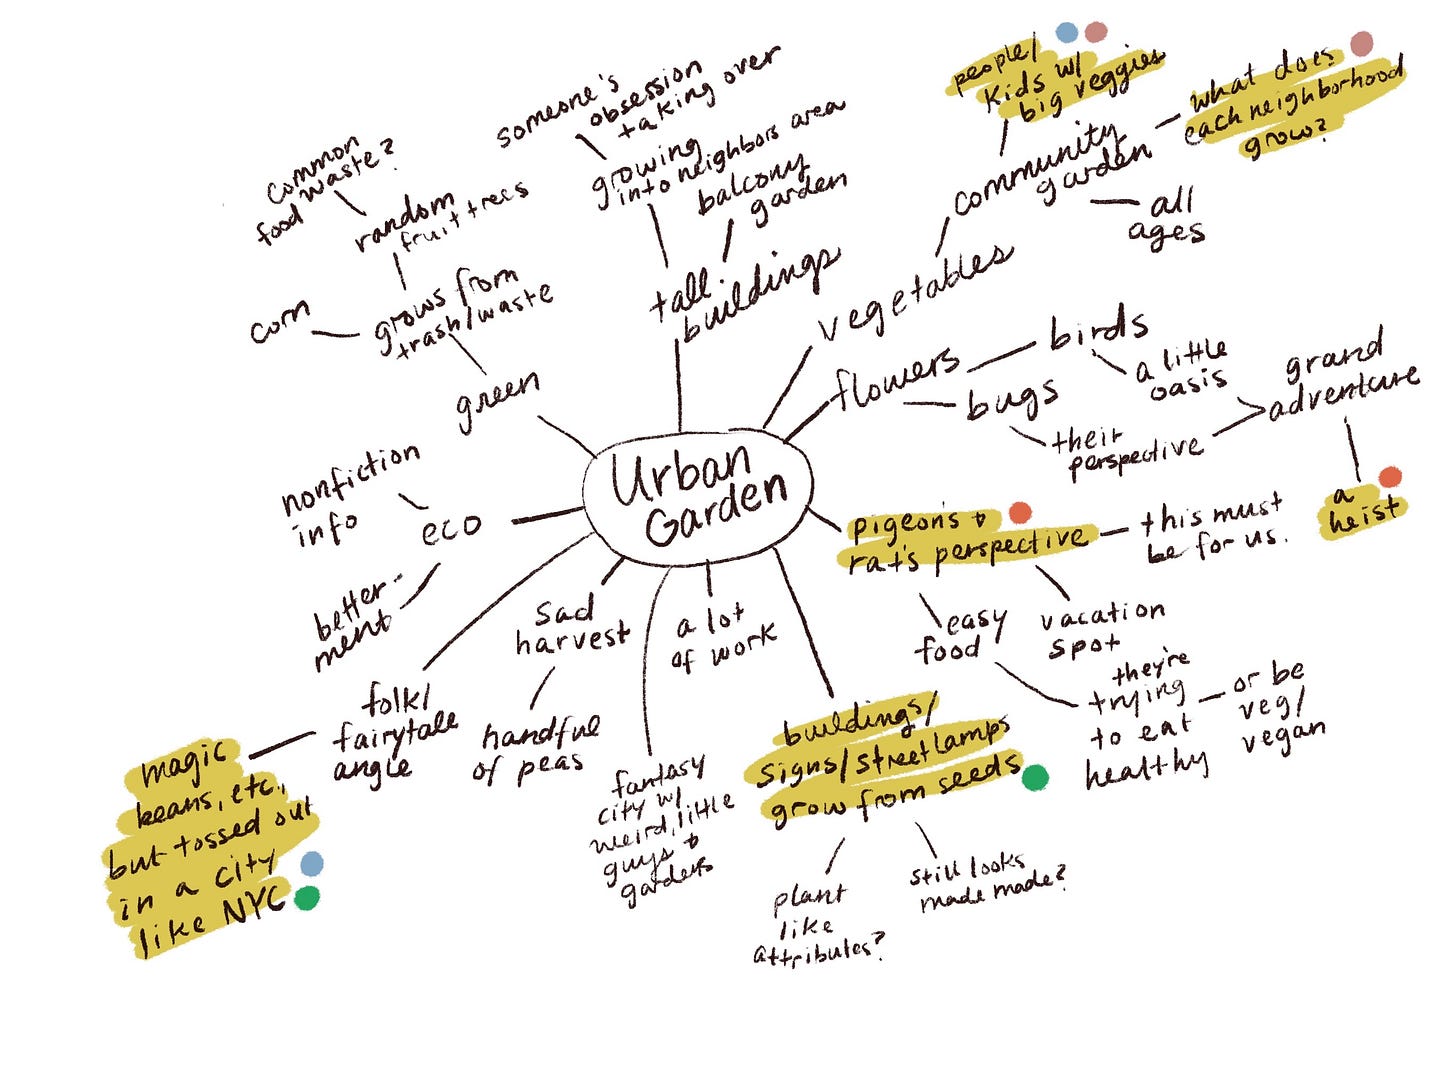 Urban
Garden
green
grows from
trash/waste
corn
random
fruit trees
common
food waste?
tall
buildings
growing
into neighbors area
someone's
obsession
taking over
balcony
garden
vegetables
community
garden
people/
kids w/
big veggies
what does
each neighborhood
grow?
all
ages
flowers
birds
a little
oasis
bugs
their
perspective
grand
adventure
a
heist
pigeons +
rat's perspective
this must
be for us.
vacation
spot
easy
food
they're
trying
to eat
healthy
or be
veg/
vegan
buildings/
signs/street lamps
grow from seeds
plant
like
attributes?
still looks
made made?
a lot
of work
fantasy
city w/
weird, little
guys +
gardens
sad
harvest
handful
of peas
folk/
fairytale
angle
magic
beans, etc.,
but tossed out
in a city
like NYC
eco
nonfiction
info
better-
ment